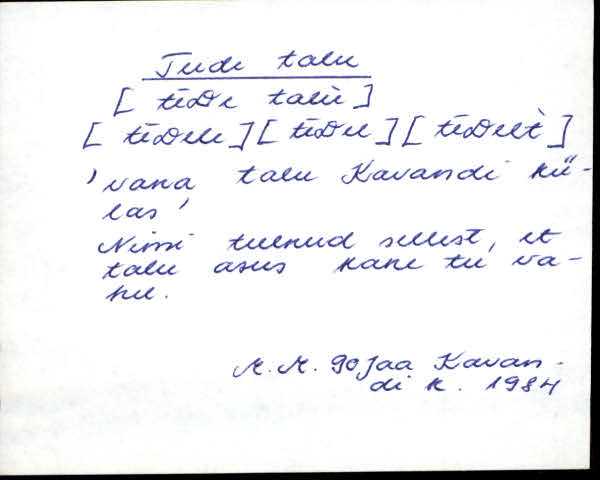 Teede talu
[ tēDe talù ]
[ tēDele ] [ tēDel ] [ tēDelt̀ ]
'vana talu Kavandi kü-
las'
Nimi tulnud sellest, et
talu asus kahe tee va-
hel.
M. M. 90 Jaa Kavan-
di k. 1984